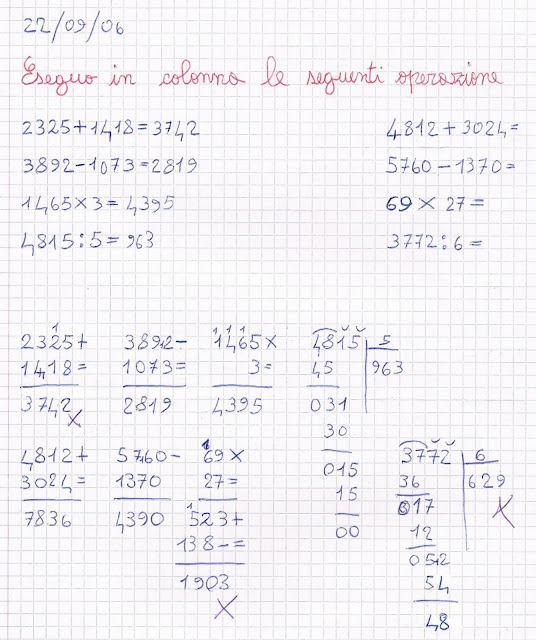 22/09/06
Eseguo in colonna le seguenti operazione
2325+1418=3742
4812+3024=
3892-1073=2819
5760-1370=
1465×3=4395
69×27=
4815:5=963
3772:6=
1
2325+
1418=
3742
X
3892-
1073=
2819
1 1 1
1465×
3=
4395
4815 5
45 963
031
30
015
15
00
4812+
3024=
7836
5760-
1370
4390
1
69×
27=
1
523+
138-=
1903
X
3772 6
36 629
017 X
12
052
54
48